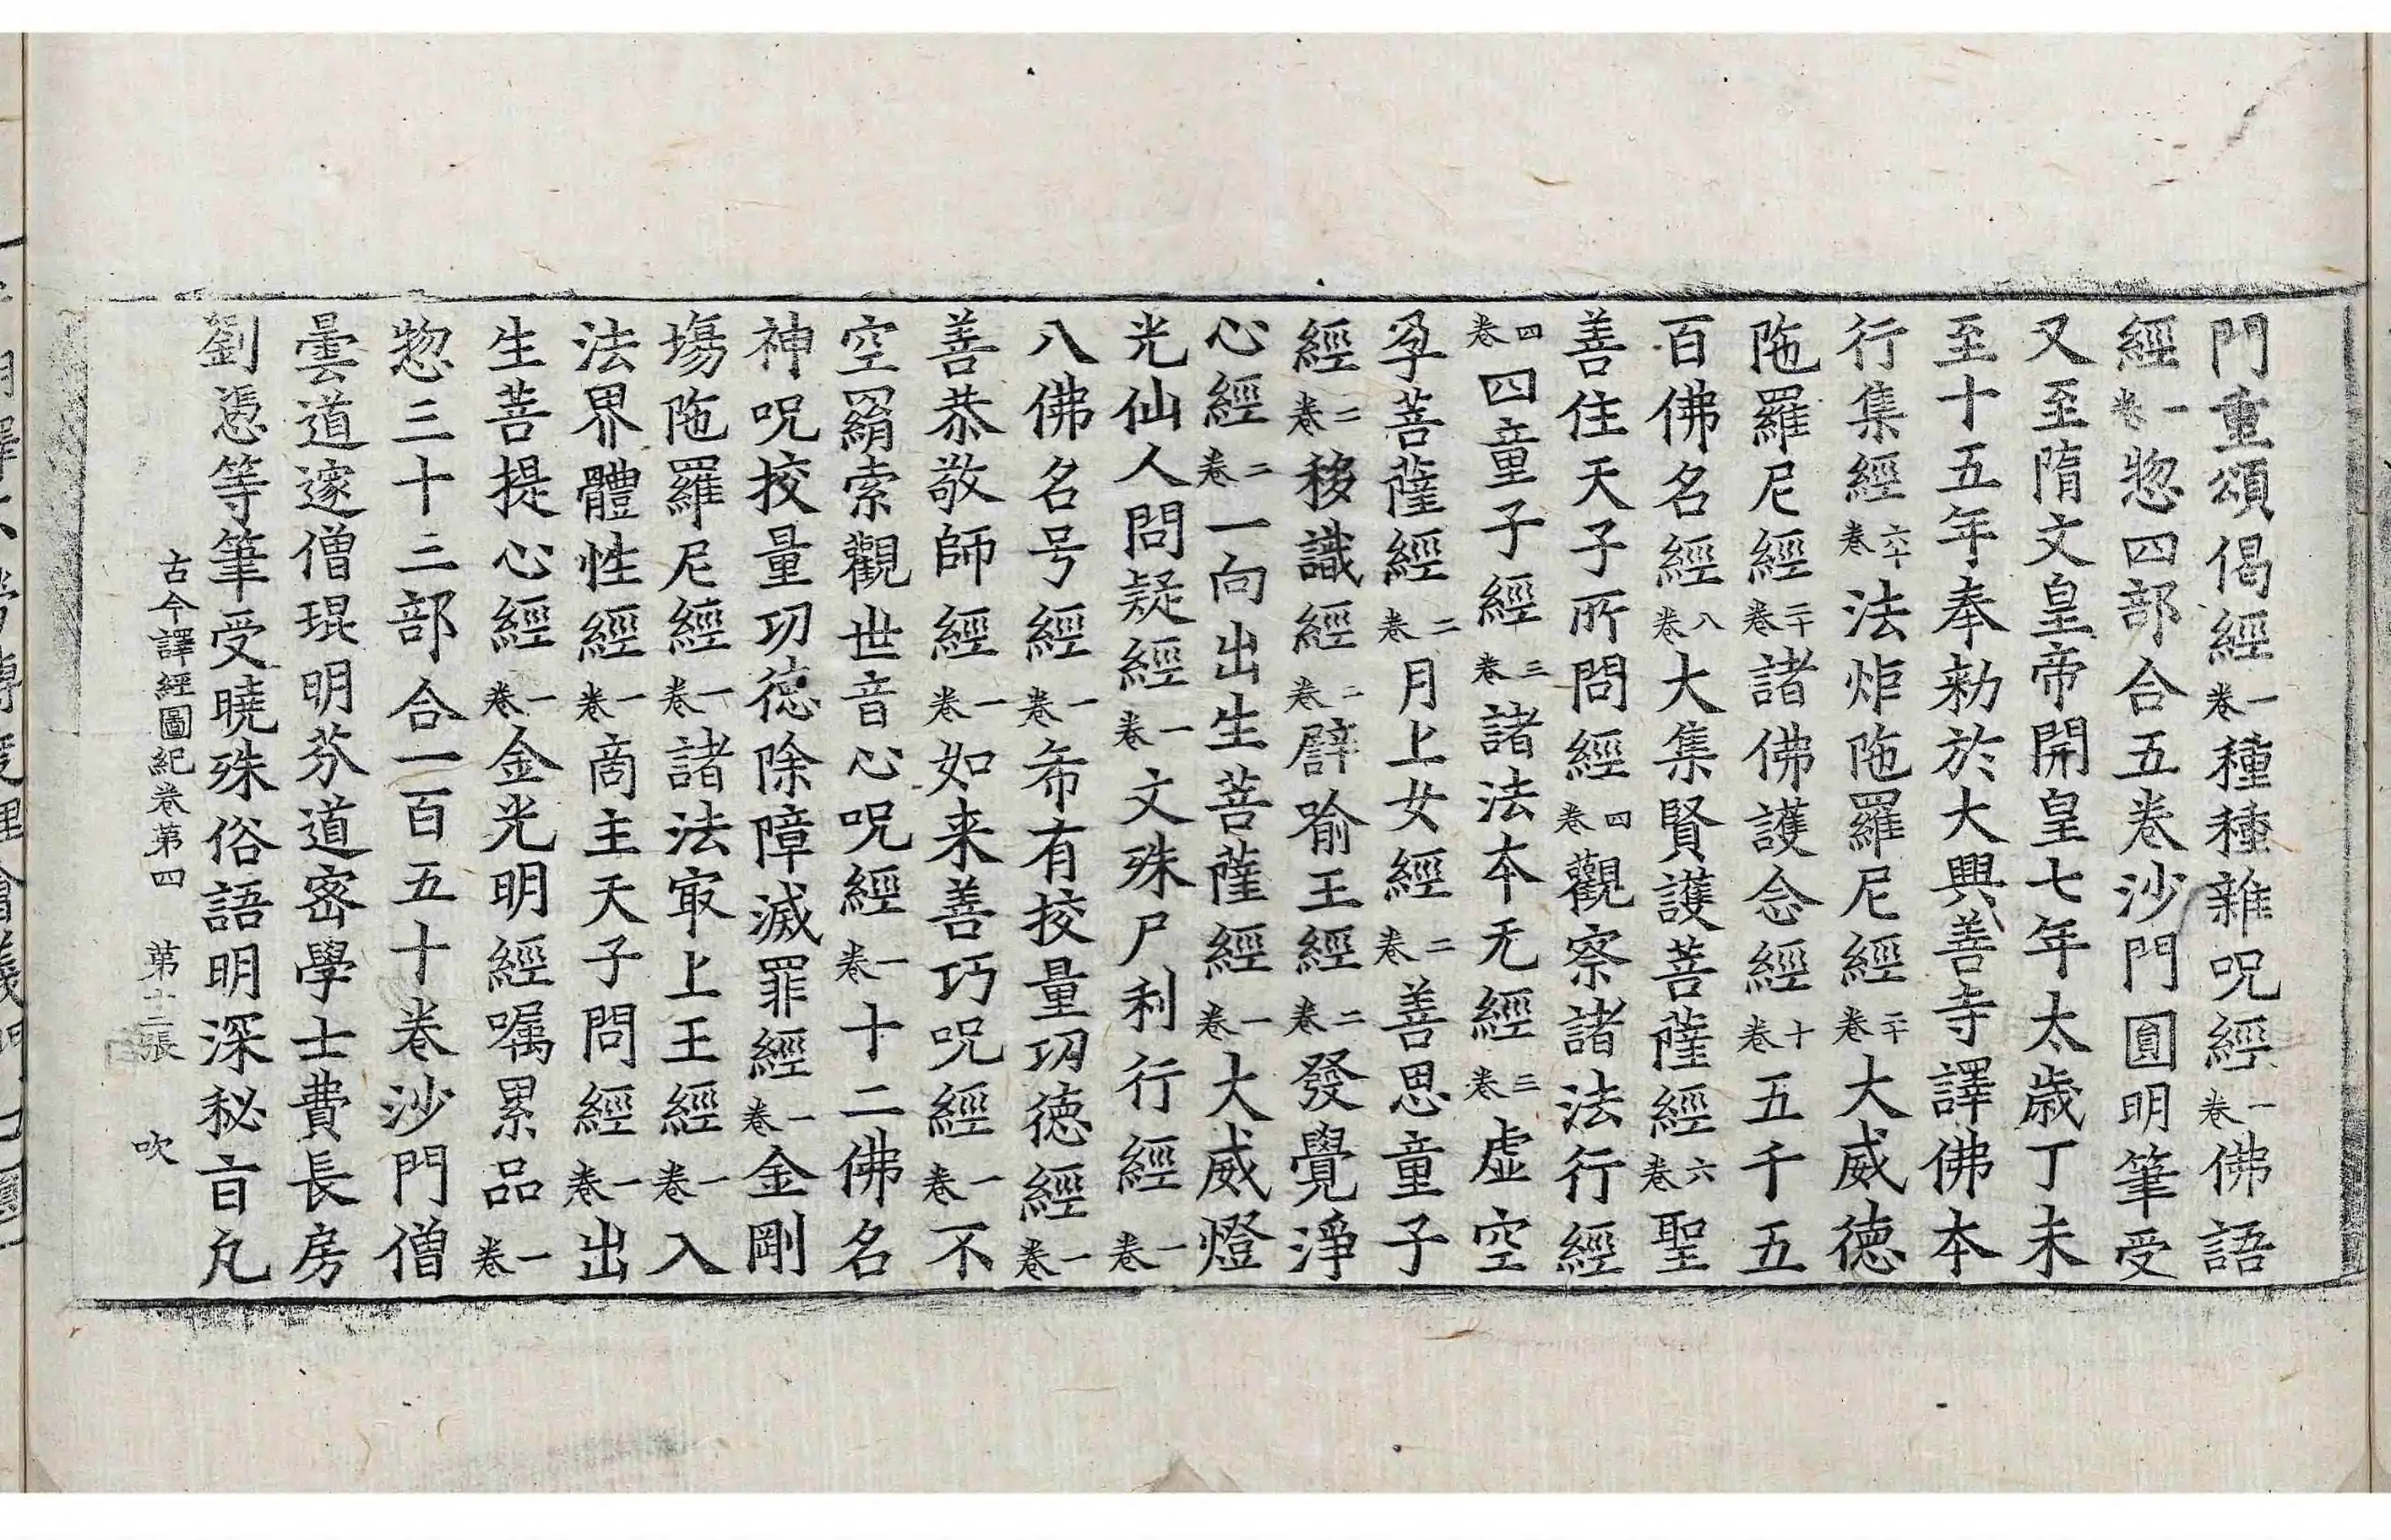 門重頌偈經一卷種種雜呪經一卷佛語
經一卷惣四部合五卷沙門圓明筆受
又至隋文皇帝開皇七年太歲丁未
至十五年奉勑於大興善寺譯佛本
行集經六十卷法炬陁羅尼經二十卷大威徳
陁羅尼經二十卷諸佛護念經十卷五千五
百佛名經八卷大集賢護菩薩經六卷聖
善住天子所問經四卷觀察諸法行經
四卷四童子經三卷諸法本无經三卷虛空
孕菩薩經二卷月上女經二卷善思童子
經二卷移識經二卷譬喻王經二卷發覺淨
心經二卷一向出生菩薩經一卷大威燈
光仙人問疑經一卷文殊尸利行經一卷
八佛名号經一卷希有挍量功徳經一卷
善恭敬師經一卷如来善巧呪經一卷不
空羂索觀世音心呪經一卷十二佛名
神呪挍量功徳除障滅罪經一卷金剛
塲陁羅尼經一卷諸法冣上王經一卷入
法界體性經一卷商主天子問經一卷出
生菩提心經一卷金光明經囑累品一卷
惣三十三部合一百五十卷沙門僧
曇道邃僧琨明芬道宻學士費長房
劉憑等筆受曉殊俗語明深秘㫖凢
古今譯經圖紀卷第四 第十二張 吹